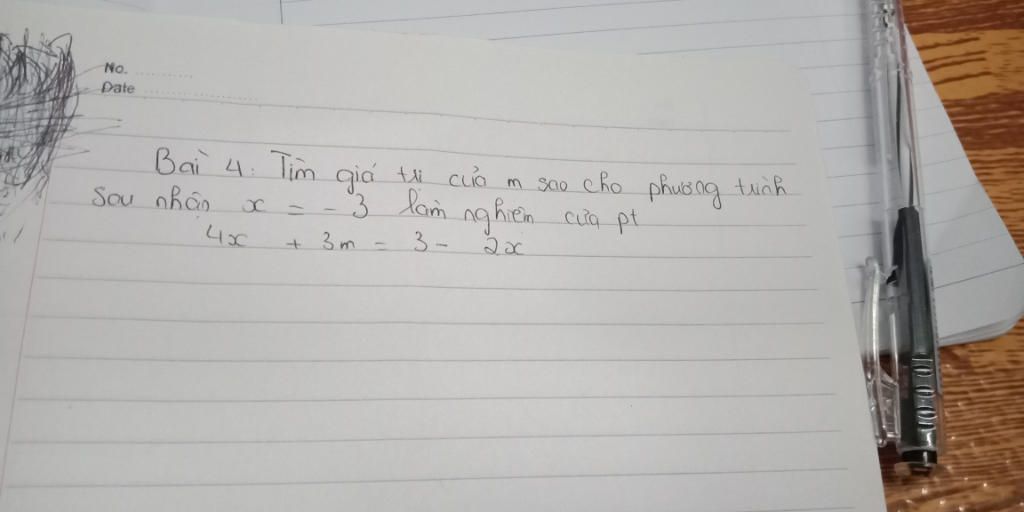 No. ............
Date ........................
Bài 4: Tìm giá trị của m sao cho phương trình
sau nhận x = -3 làm nghiệm của pt
4x + 3m = 3 - 2x